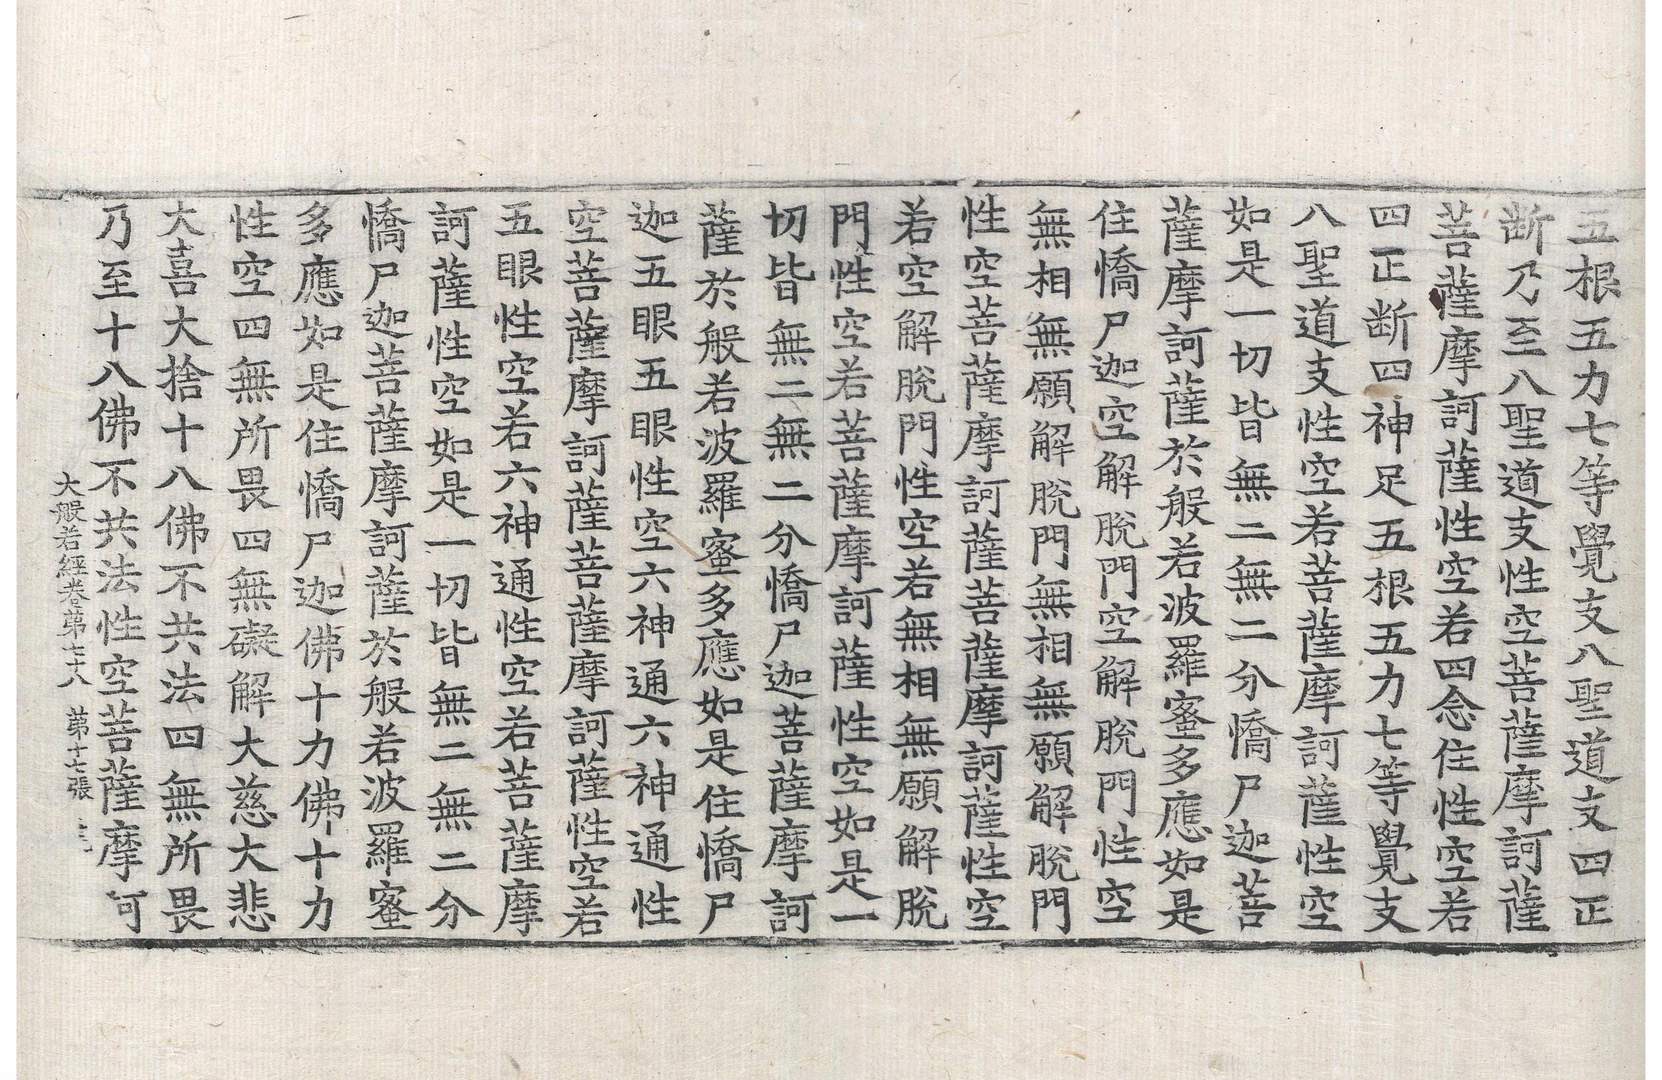 五根五力七等覺支八聖道支四正
断乃至八聖道支性空菩薩摩訶薩
菩薩摩訶薩性空若四念住性空若
四正断四神足五根五力七等覺支
八聖道支性空若菩薩摩訶薩性空
如是一切皆無二無二分憍尸迦菩
薩摩訶薩於般若波羅蜜多應如是
住憍尸迦空解脫門空解脫門性空
無相無願解脫門無相無願解脫門
性空菩薩摩訶薩菩薩摩訶薩性空
若空解脫門性空若無相無願解脫
門性空若菩薩摩訶薩性空如是一
切皆無二無二分憍尸迦菩薩摩訶
薩於般若波羅蜜多應如是住憍尸
迦五眼五眼性空六神通六神通性
空菩薩摩訶薩菩薩摩訶薩性空若
五眼性空若六神通性空若菩薩摩
訶薩性空如是一切皆無二無二分
憍尸迦菩薩摩訶薩於般若波羅蜜
多應如是住憍尸迦佛十力佛十力
性空四無所畏四無礙解大慈大悲
大喜大捨十八佛不共法四無所畏
乃至十八佛不共法性空菩薩摩訶
大般若經卷第七十八 第十七張